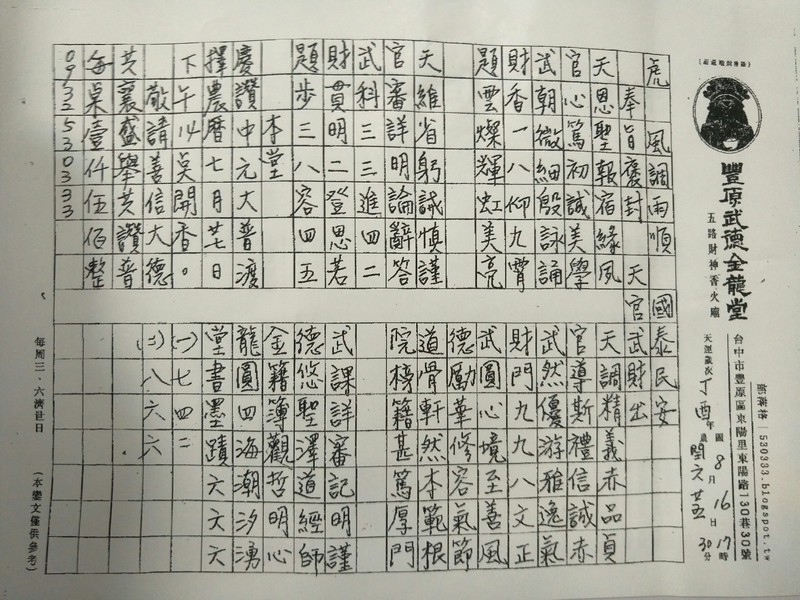 （設籍別院處）
豐原武德金龍堂
五路財神香火廟
台中市豐原區東陽里東陽路130巷30號
部落格｜530333.blogspot.tw
天運歲次丁酉年國8月16日17時
農閏六廿五30分
虎 風調雨順 國泰民安
奉旨褒封 天官武財出
天恩聖報宿緣風
官心篤初誠美學
武朝微細殷詠誦
財香一八仰九霄
題雲燦輝虹美亮
天維省躬誠慎謹
官審詳明論辭答
武科三三進四二
財貫明二登思若
題步三八容四五
本堂
慶讚中元大普渡
擇農曆七月廿七日
下午 開香。
敬請善信大德
共襄盛舉共讚普
每桌壹仟伍佰整
0932530333
天調精義赤品貞
官導斯禮信誠赤
武然優游雅逸氣
財門九九八文正
武圓心境至善風
德勵華修容氣節
道骨軒然本範根
院榜籍甚篤厚門
武課詳審記明謹
德悠聖澤道經師
金籍簿觀哲明心
龍圓四海潮汐湧
堂書墨蹟六六六
(一)七四二
(二)八六六
每周三、六濟世日
（本鸞文僅供參考）